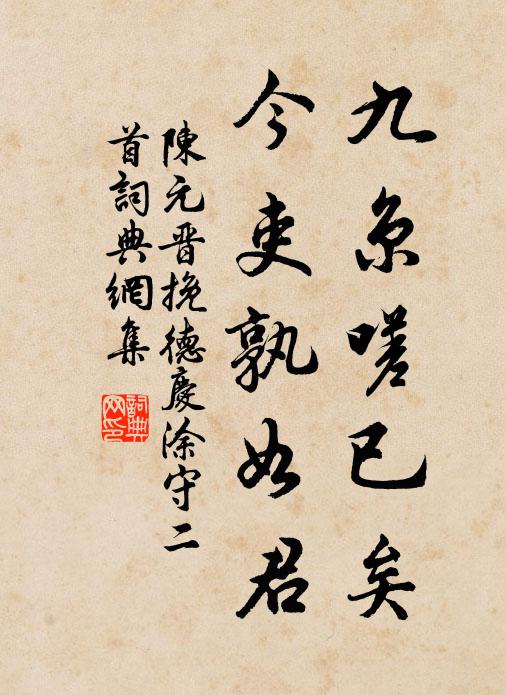 九京嗟已矣
今吏孰如君
陳元晋挽德慶涂守二
首詞典網集
詞典
网印